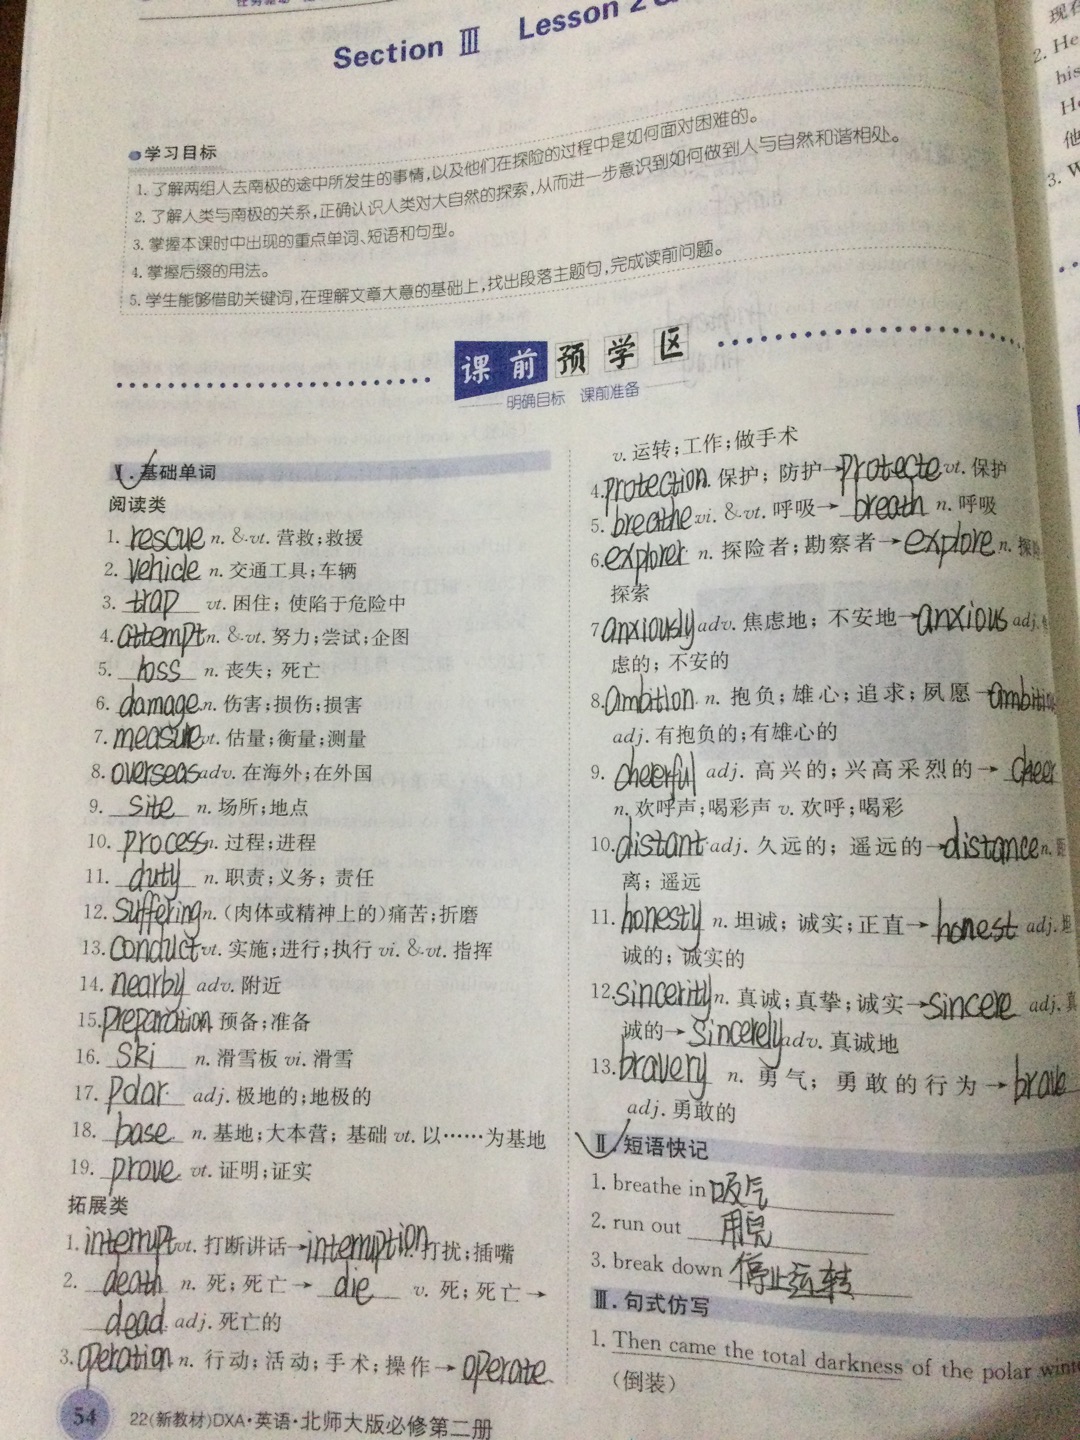 Section Ⅲ Lesson 2 &
学习目标
1. 了解两组人去南极的途中所发生的事情,以及他们在探险的过程中是如何面对困难的。
2. 了解人类与南极的关系,正确认识人类对大自然的探索,从而进一步意识到如何做到人与自然和谐相处。
3. 掌握本课时中出现的重点单词、短语和句型。
4. 掌握后缀的用法。
5. 学生能够借助关键词,在理解文章大意的基础上,找出段落主题句,完成读前问题。
课前预学区
明确目标 课前准备
Ⅰ. 基础单词
阅读类
1. rescue n. & vt. 营救;救援
2. vehicle n. 交通工具;车辆
3. trap vt. 困住; 使陷于危险中
4. attempt n. & vt. 努力;尝试;企图
5. loss n. 丧失; 死亡
6. damage n. 伤害;损伤;损害
7. measure vt. 估量;衡量;测量
8. overseas adv. 在海外;在外国
9. site n. 场所;地点
10. process n. 过程;进程
11. duty n. 职责;义务; 责任
12. suffering n. (肉体或精神上的)痛苦;折磨
13. conduct vt. 实施;进行;执行 vi. & vt. 指挥
14. nearby adv. 附近
15. preparation 预备;准备
16. ski n. 滑雪板 vi. 滑雪
17. polar adj. 极地的;地极的
18. base n. 基地;大本营; 基础 vt. 以……为基地
19. prove vt. 证明;证实
拓展类
1. interrupt vt. 打断讲话→interruption 打扰;插嘴
2. death n. 死; 死亡→ die v. 死; 死亡→
dead adj. 死亡的
3. operation n. 行动; 活动; 手术; 操作→ operate
v. 运转;工作;做手术
4. protection. 保护; 防护→protecte vt. 保护
5. breathe vi. & vt. 呼吸→ breath n. 呼吸
6. explorer n. 探险者;勘察者→explore n. 探
探索
7. anxiously adv. 焦虑地; 不安地→anxious adj.
虑的; 不安的
8. ambition n. 抱负; 雄心; 追求; 夙愿→
adj. 有抱负的;有雄心的
9. cheerful adj. 高兴的; 兴高采烈的→ cheer
n. 欢呼声;喝彩声 v. 欢呼;喝彩
10. distant adj. 久远的; 遥远的→distance n. 距
离; 遥远
11. honesty n. 坦诚; 诚实; 正直→ honest adj. 坦
诚的; 诚实的
12. sincerity n. 真诚;真挚;诚实→sincere adj. 真
诚的→ sincerely adv. 真诚地
13. bravery n. 勇气; 勇敢的行为→ brave
adj. 勇敢的
Ⅱ. 短语快记
1. breathe in 吸气
2. run out 用完
3. break down 停止运转
Ⅲ. 句式仿写
1. Then came the total darkness of the polar
(倒装)
54 22(新教材)DXA·英语·北师大版必修第二册
现在
2. He
his
He
他
3. W